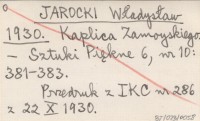 JAROCKI Władysław
1930. Kaplica Zamoyskiego.
– Sztuki Piękne 6, nr 10:
381-383.
Przedruk z IKC nr 286
z 22 X 1930.